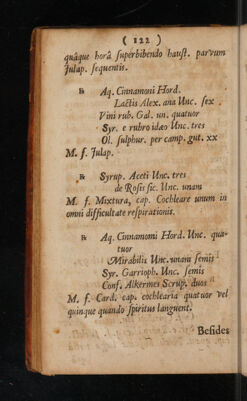 ( 122 )
quâque horâ superbibendo haust. parvum
Julap. sequentis.
℞ Aq. Cinnamoni Hord.
Lactis Alex. ana Unc. sex
Vini rub. Gal. un. quatuor
Syr. e rubro idæo Unc. tres
Ol. sulphur. per camp. gut. xx
M. f. Julap.
℞ Syrup. Aceti Unc. tres
de Rosis sic. Unc. unam
M. f. Mixtura, cap. Cochleare unum in
omni difficultate respirationis.
℞ Aq. Cinnamomi Hord. Unc. qua-
tuor
Mirabilis Unc. unam semis
Syr. Garrioph. Unc. semis
Conf. Alkermes Scrup. duos
M. f. Card. cap. cochlearia quatuor vel
quinque quando spiritus languent.
Besides